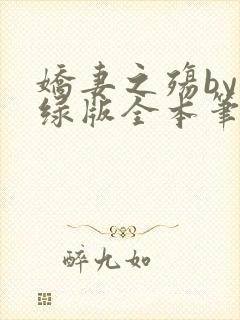 娇妻之殇by
绿版全本笔
醉九如